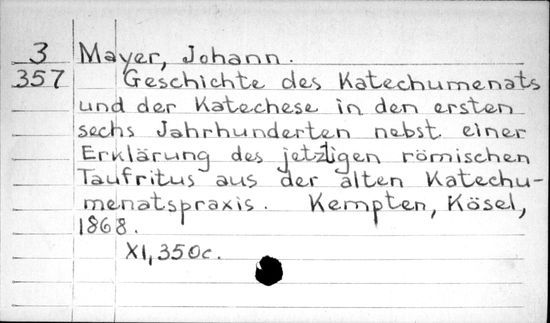 3 Mayer, Johann.
357 Geschichte des Katechumenats
und der Katechese in den ersten
sechs Jahrhunderten nebst einer
Erklärung des jetztigen römischen
Taufritus aus der alten Katechu-
menatspraxis. Kempten, Kösel,
1868.
XI, 350c.